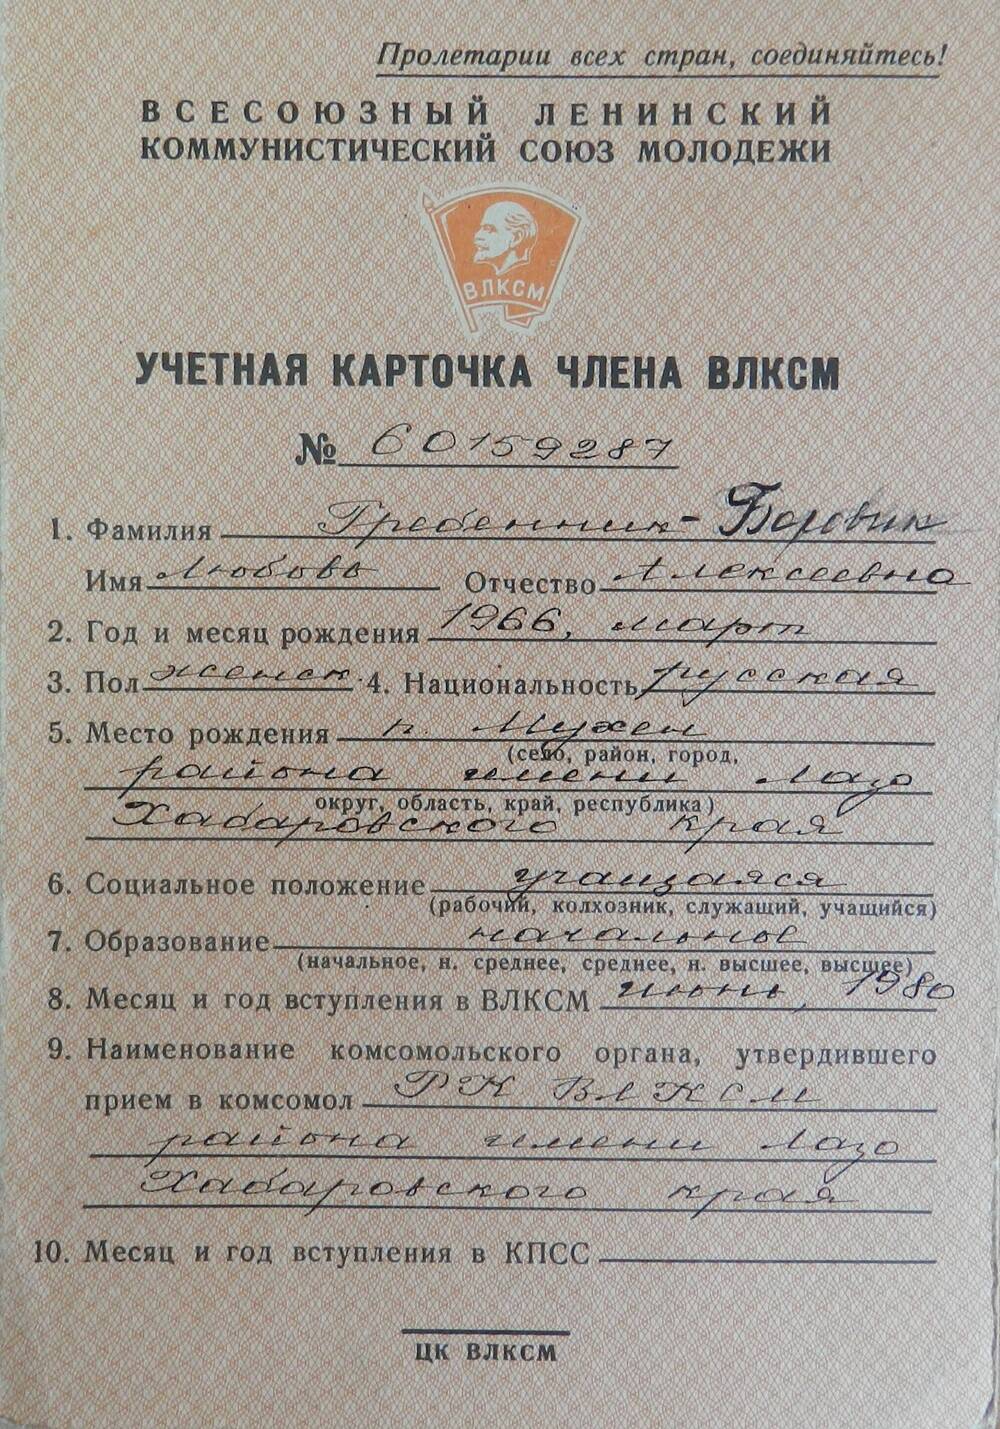 Пролетарии всех стран, соединяйтесь!
ВСЕСОЮЗНЫЙ ЛЕНИНСКИЙ
КОММУНИСТИЧЕСКИЙ СОЮЗ МОЛОДЕЖИ
ВЛКСМ
УЧЕТНАЯ КАРТОЧКА ЧЛЕНА ВЛКСМ
№ 60159287
1. Фамилия Гребенник - Боровик
Имя Любовь Отчество Алексеевна
2. Год и месяц рождения 1966, март
3. Пол женск. 4. Национальность русская
5. Место рождения п. Мухен
(село, район, город,
района имени Лазо
округ, область, край, республика)
Хабаровского края
6. Социальное положение учащаяся
(рабочий, колхозник, служащий, учащийся)
7. Образование начальное
(начальное, н. среднее, среднее, н. высшее, высшее)
8. Месяц и год вступления в ВЛКСМ июнь, 1980
9. Наименование комсомольского органа, утвердившего
прием в комсомол РК ВЛКСМ
района имени Лазо
Хабаровского края
10. Месяц и год вступления в КПСС
ЦК ВЛКСМ